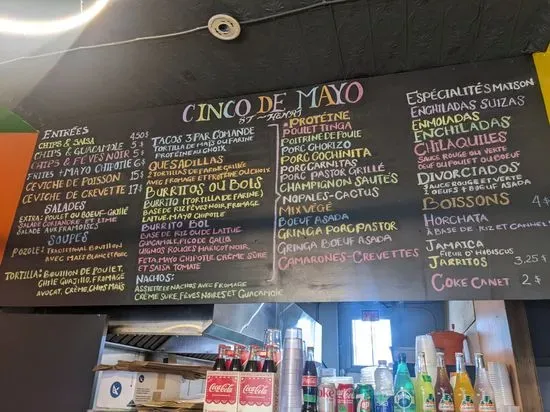 CINCO DE MAYO
ENTRÉES
CHIPS & SALSA 4,50$
CHIPS & GUACAMOLE 5$
CHIPS & FEVES NOIR 5$
FRITES + MAYO CHIPOTLE 6$
CEVICHE DE POISSON 15$
CEVICHE DE CREVETTE 17$
SALADES
EXTRA: POULET OU BOEUF-GRILLÉ
SALADE CORIANDRE ET LIME
SALADE AUX FRAMBOISES
SOUPES
POZOLE: TRADITIONNAL BOUILLON
AVEC MAIS BLANC ET PORC
TORTILLA: BOUILLON DE POULET,
CHILE GUAJILLO, FROMAGE
AVOCAT, CRÈME, CHIPS MAIS
TACOS 3 PAR COMMANDE
TORTILLA DE MAIS OU FARINE
PROTEINE AU CHOIX
QUESADILLAS
2 TORTILLAS DE FARINE GRILLÉE
AVEC FROMAGE ET PROTEINE OU CHOIX
BURRITOS OU BOLS
BURRITO (TORTILLA DE FARINE)
BASE DE RIZ FEVES NOIR, FROMAGE
LAITUE, MAYO CHIPOTLE
BURRITO BOL
BASE DE RIZ OU DE LAITUE
GUACAMOLE, PICO DE GALLO
OIGNONS ROUGES HARICOT NOIR
FETA, MAYO CHIPOTLE CRÈME SÛRE
ET SALSA TOMATE
NACHOS:
ASSIETTE NACHOS AVEC FROMAGE
CRÈME SURE, FÈVES NOIRES ET GUACAMOLE
PROTÉINE
POULET TINGA
POITRINE DE POULE
PORC CHORIZO
PORC COCHINITA
PORC CARNITAS
PORC PASTOR GRILLÉ
CHAMPIGNON SAUTÉS
NOPALES-CACTUS
MIX VEGÉ
BOEUF ASADA
GRINGA PORC PASTOR
GRINGA BOEUF ASADA
CAMARONES-CREVETTES
ESPÉCIALITÉS MAISON
ENCHILADAS SUIZAS
ENMOLADAS
ENCHILADAS
CHILAQUILES
SAUCE ROUGE OU VERTE
OEUF OU POULET OU BOEUF
DIVORCIADOS
SAUCE ROUGE ET VERTE
2 OEUFS + BOEUF ASADA
BOISSONS
HORCHATA 4$
À BASE DE RIZ ET CANNEL
JAMAICA
FLEUR D'HIBISCUS
JARRITOS 3,25$
COKE CANET 2$
Coca-Cola
Coca-Cola